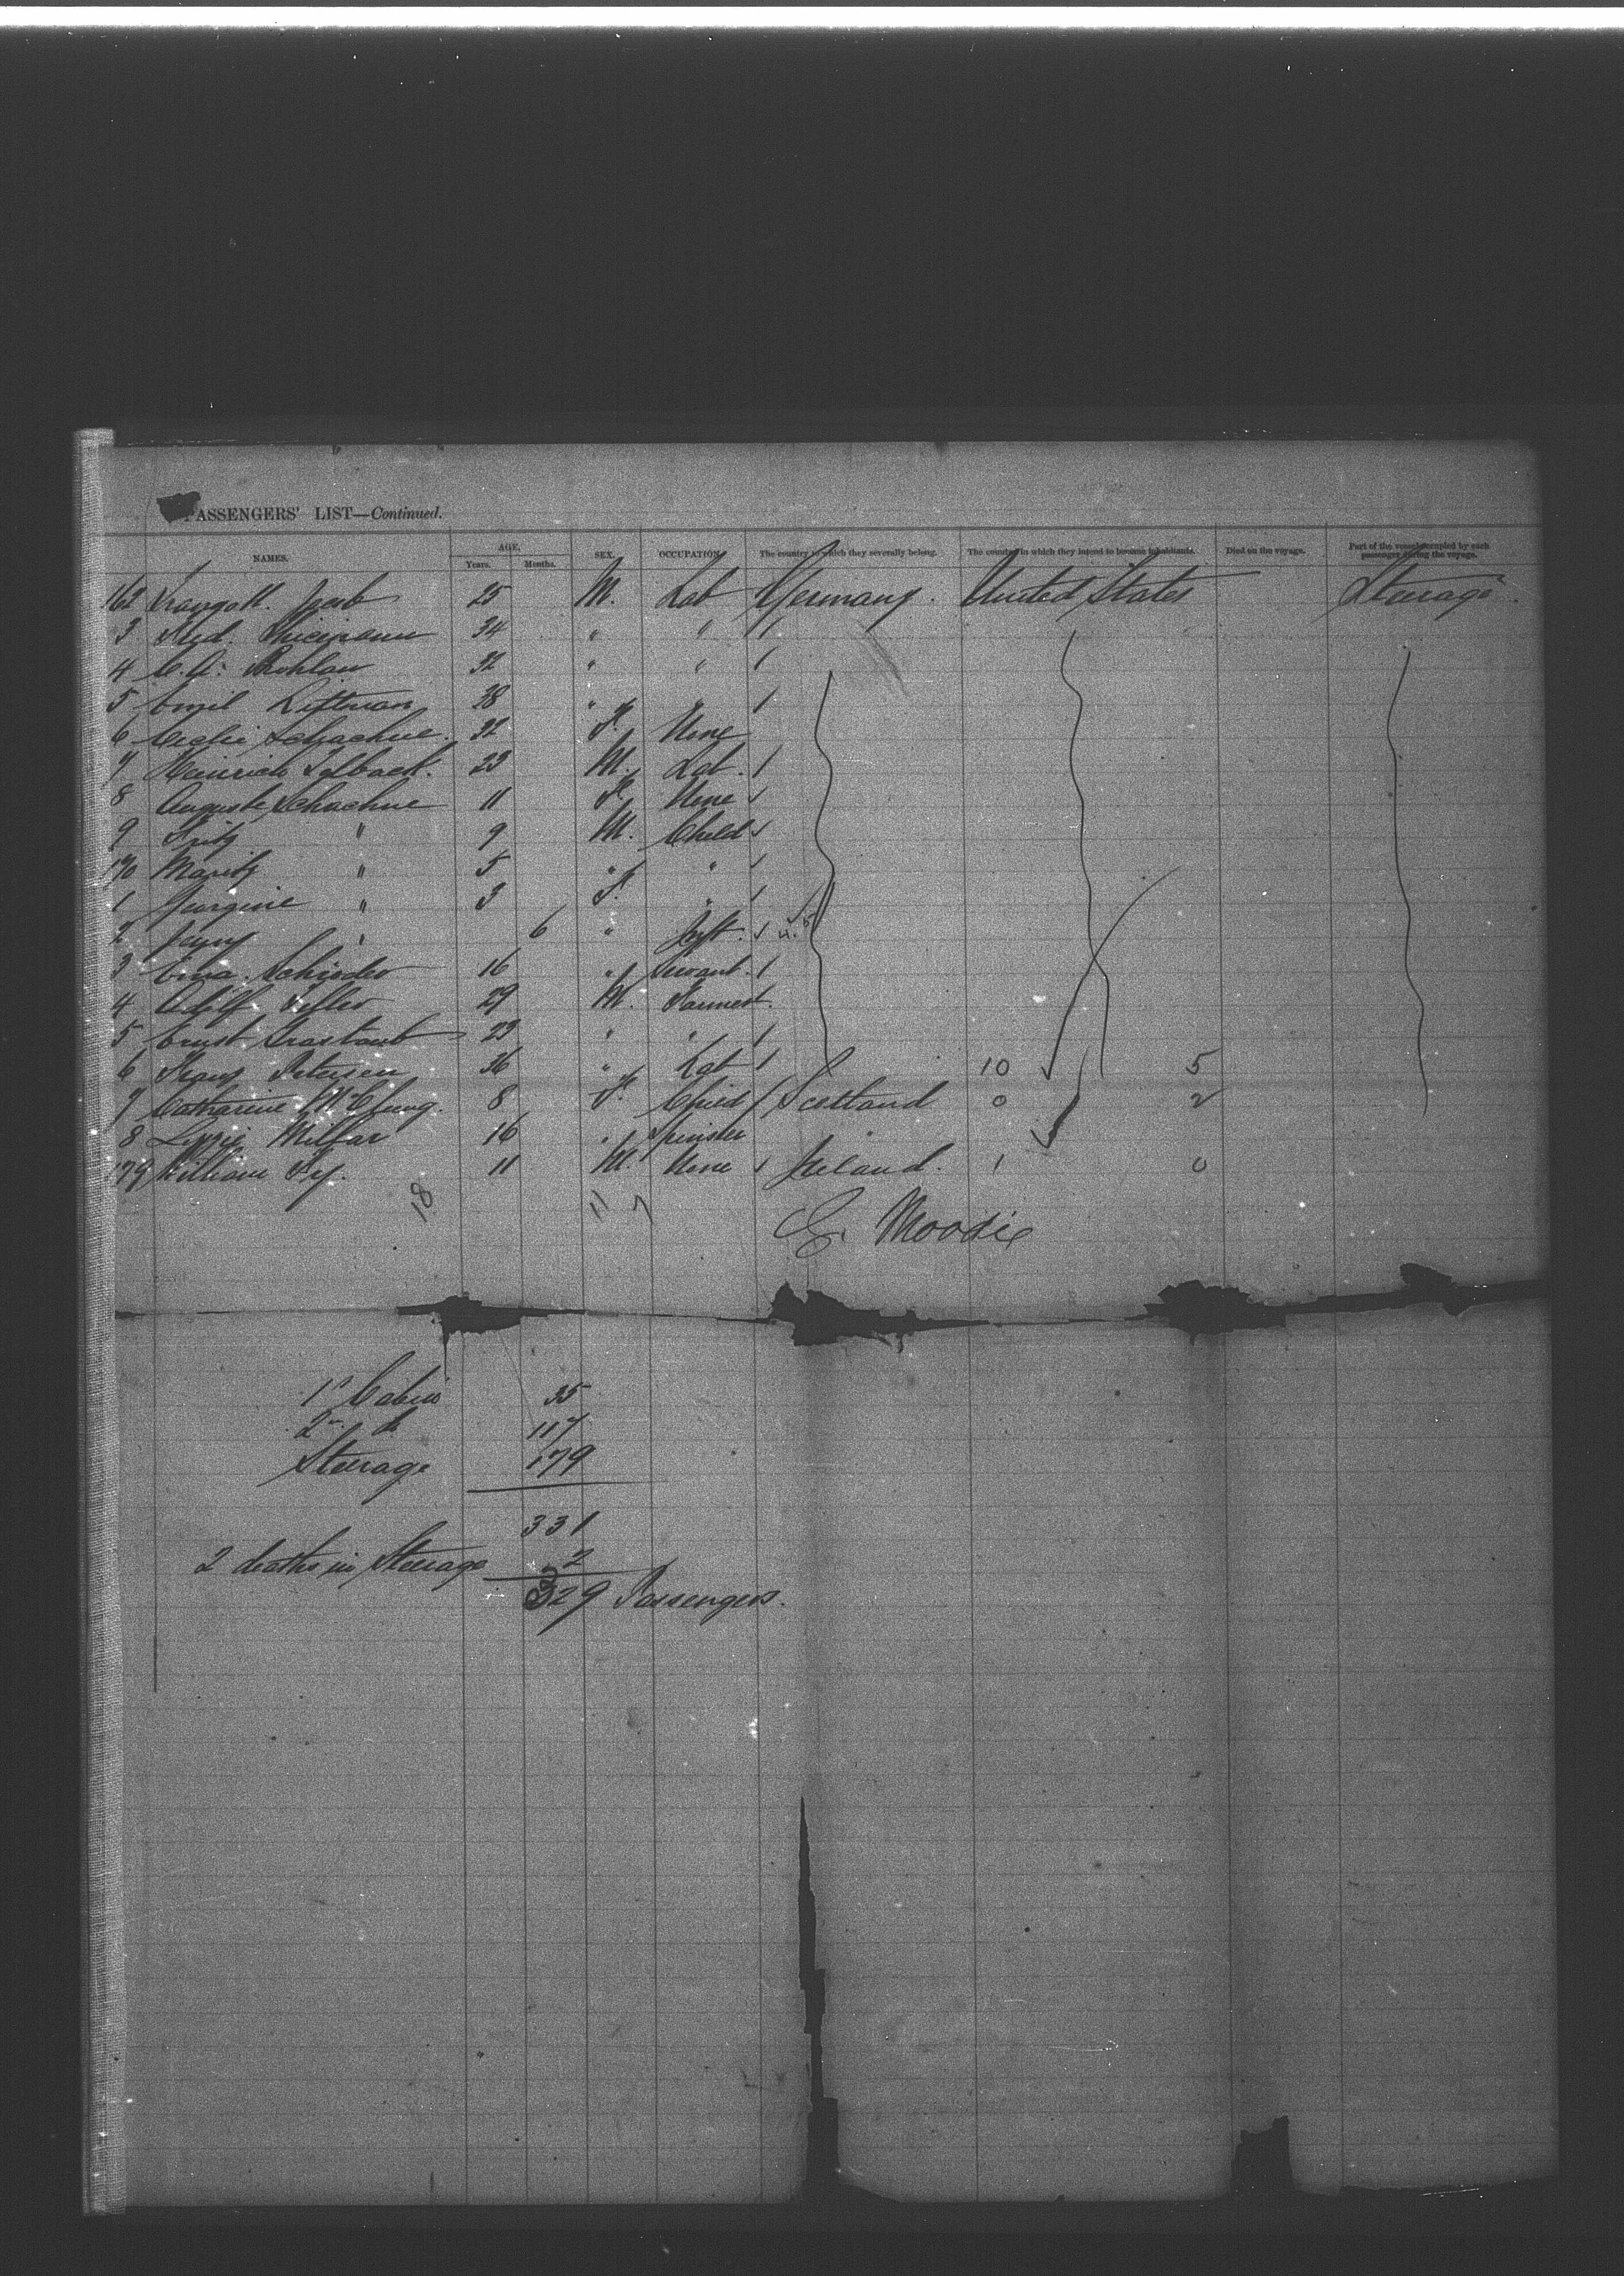 PASSENGERS' LIST—Continued.
NAMES. AGE. Years. Months. SEX. OCCUPATION. The country to which they severally belong. The country in which they intend to become inhabitants. Died on the voyage. Part of the vessel occupied by each passenger during the voyage.
162 Traugott Jacob 25 M. Lab Germany. United States Steerage
3 34 " " 1
4 C. A. Bohlau 32 " " 1
5 Emil Littman 38 " " 1
6 Schachne. 32 F. None
7 Heinrich 23 M. Lab. 1
8 Auguste Schachne 11 F. None ✓
9 Fritz " 9 M. Child ✓
170 Moritz " 5 " " 1
1 " 3 F. " 1
2 Jenny " 6 " Inft. ✓
3 Erna Schroder 16 " Servant. 1
4 Adolf 29 M. Farmer
5 Ernst 23 " " 1
6 Franz Petersen 36 " Lab 1 10 5
7 Catharine McClung. 8 F. Child / Scotland 0 2
8 Lizzie Millar 16 " Spinster
179 William Fy. 11 M. None 1 Ireland. 1 0
18 11 7
G. Moodie
1st Cabin 35
2nd do 117
Steerage 179
331
2 deaths in Steerage 2
329 Passengers.